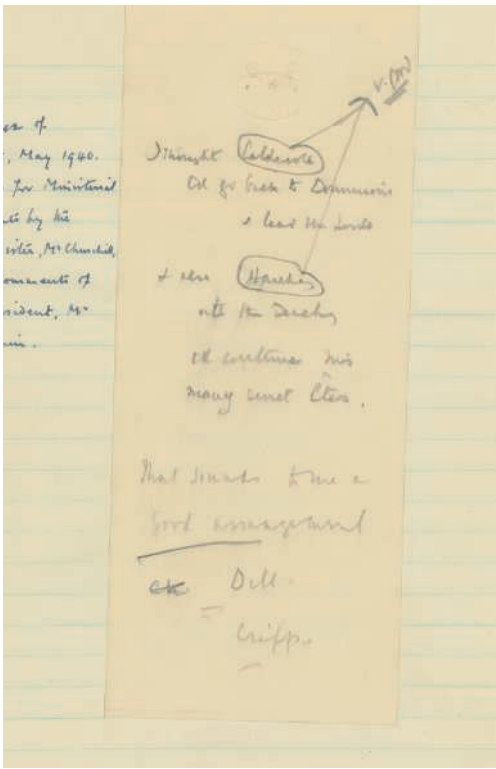 es of
, May 1940.
for Ministerial
ts by the
ister, Mr Churchill,
comments of
resident, Mr
in.
v. good
I thought Caldecote
Cd go back to Dominions
& lead the Lords
& also Hankey
with the Duchy
cd continue his
many secret Cttees.
That sounds to me a
good arrangement
Dill
Cripps